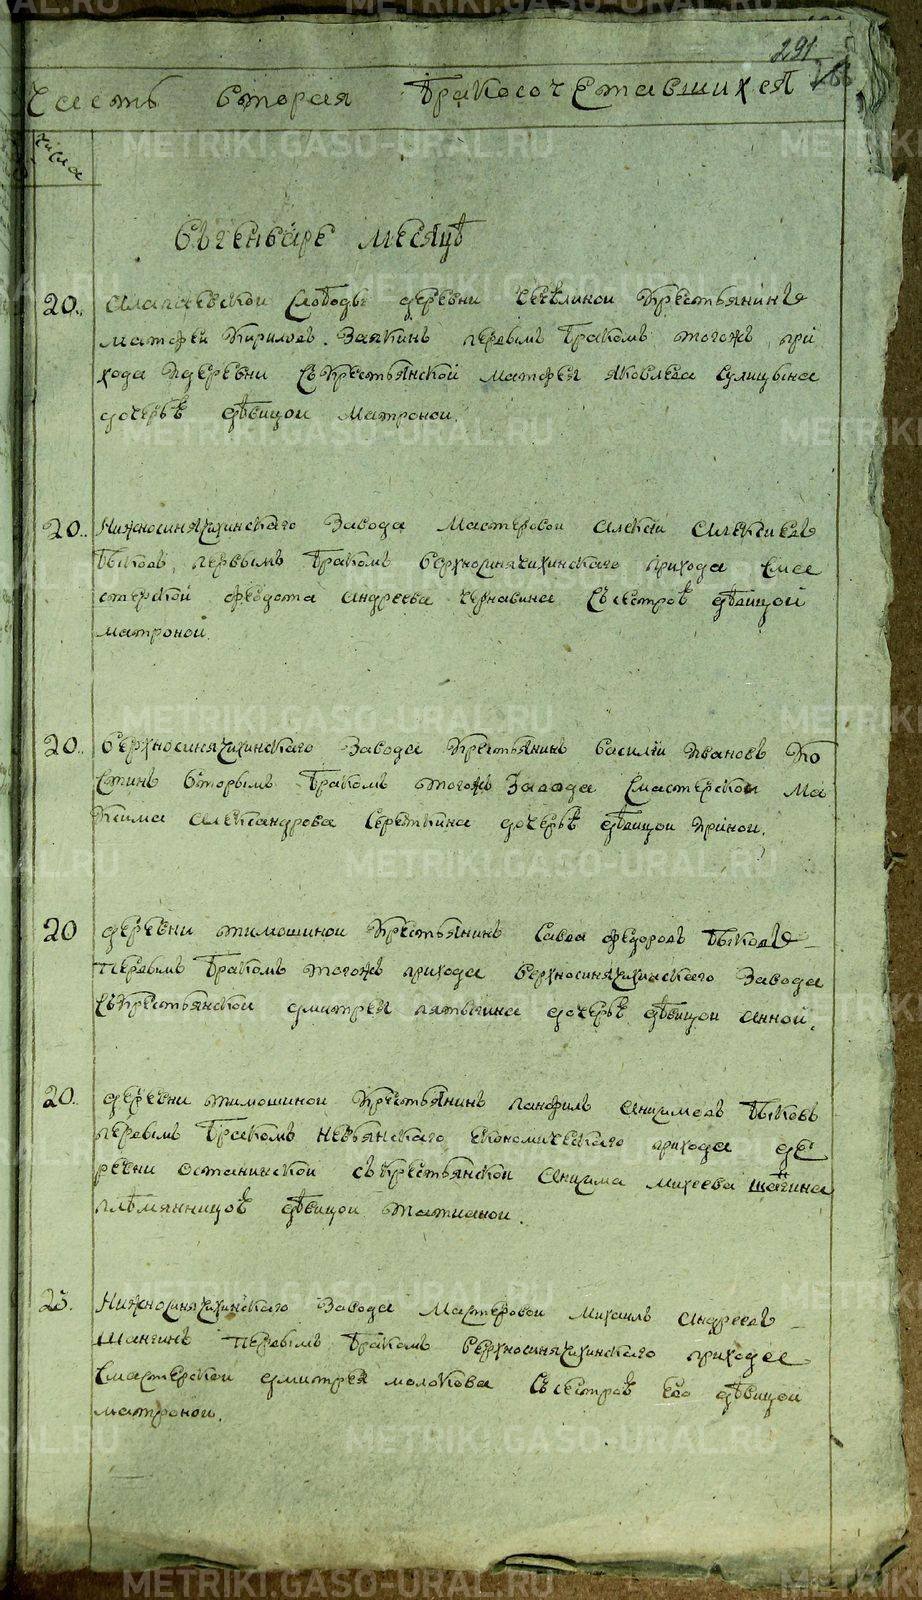 291
Часть вторая бракосочетавшихся
Числа
Въ генваре месяце
20. Алапаевской слободы деревни крестьянинъ
Матфей Кириловъ Заякинъ первымъ бракомъ тогожъ при
хода и деревни съ крестьянской Матфея Яковлева
дочерью девицой Матроной.
20. Нижносинячихинскаго завода мастеровой Алексий Алексиевъ
Быковъ, первымъ бракомъ Верхносинячихинскаго прихода смас
терской Федота Андреева Чернавина съ сестрою девицой
Матроной.
20. Верхносинячихинскаго завода крестьянинъ Василий Ивановъ Ко
стинъ вторымъ бракомъ тогожъ завода смастерской Ма
ксима Александрова дочерью девицой Ириной.
20 деревни Тимошиной крестьянинъ Савва Федоровъ Быковъ
первымъ бракомъ тогожъ прихода Верхносинячихинскаго завода
съ крестьянской Дмитрея Пятыгина дочерью девицой Анной.
20. деревни Тимошиной крестьянинъ Панфилъ Анцимовъ Быковъ
первымъ бракомъ Невьянскаго економическаго прихода де
ревни Останинской съ крестьянской Анцима Михеева Шагина
племянницою девицой Татианой.
25. Нижносинячихинскаго завода мастеровой Михаилъ Андреевъ
Шангинъ первымъ бракомъ Верхносинячихинскаго прихода
смастерской Дмитрея Молокова съ сестрою его девицой
Матроной.